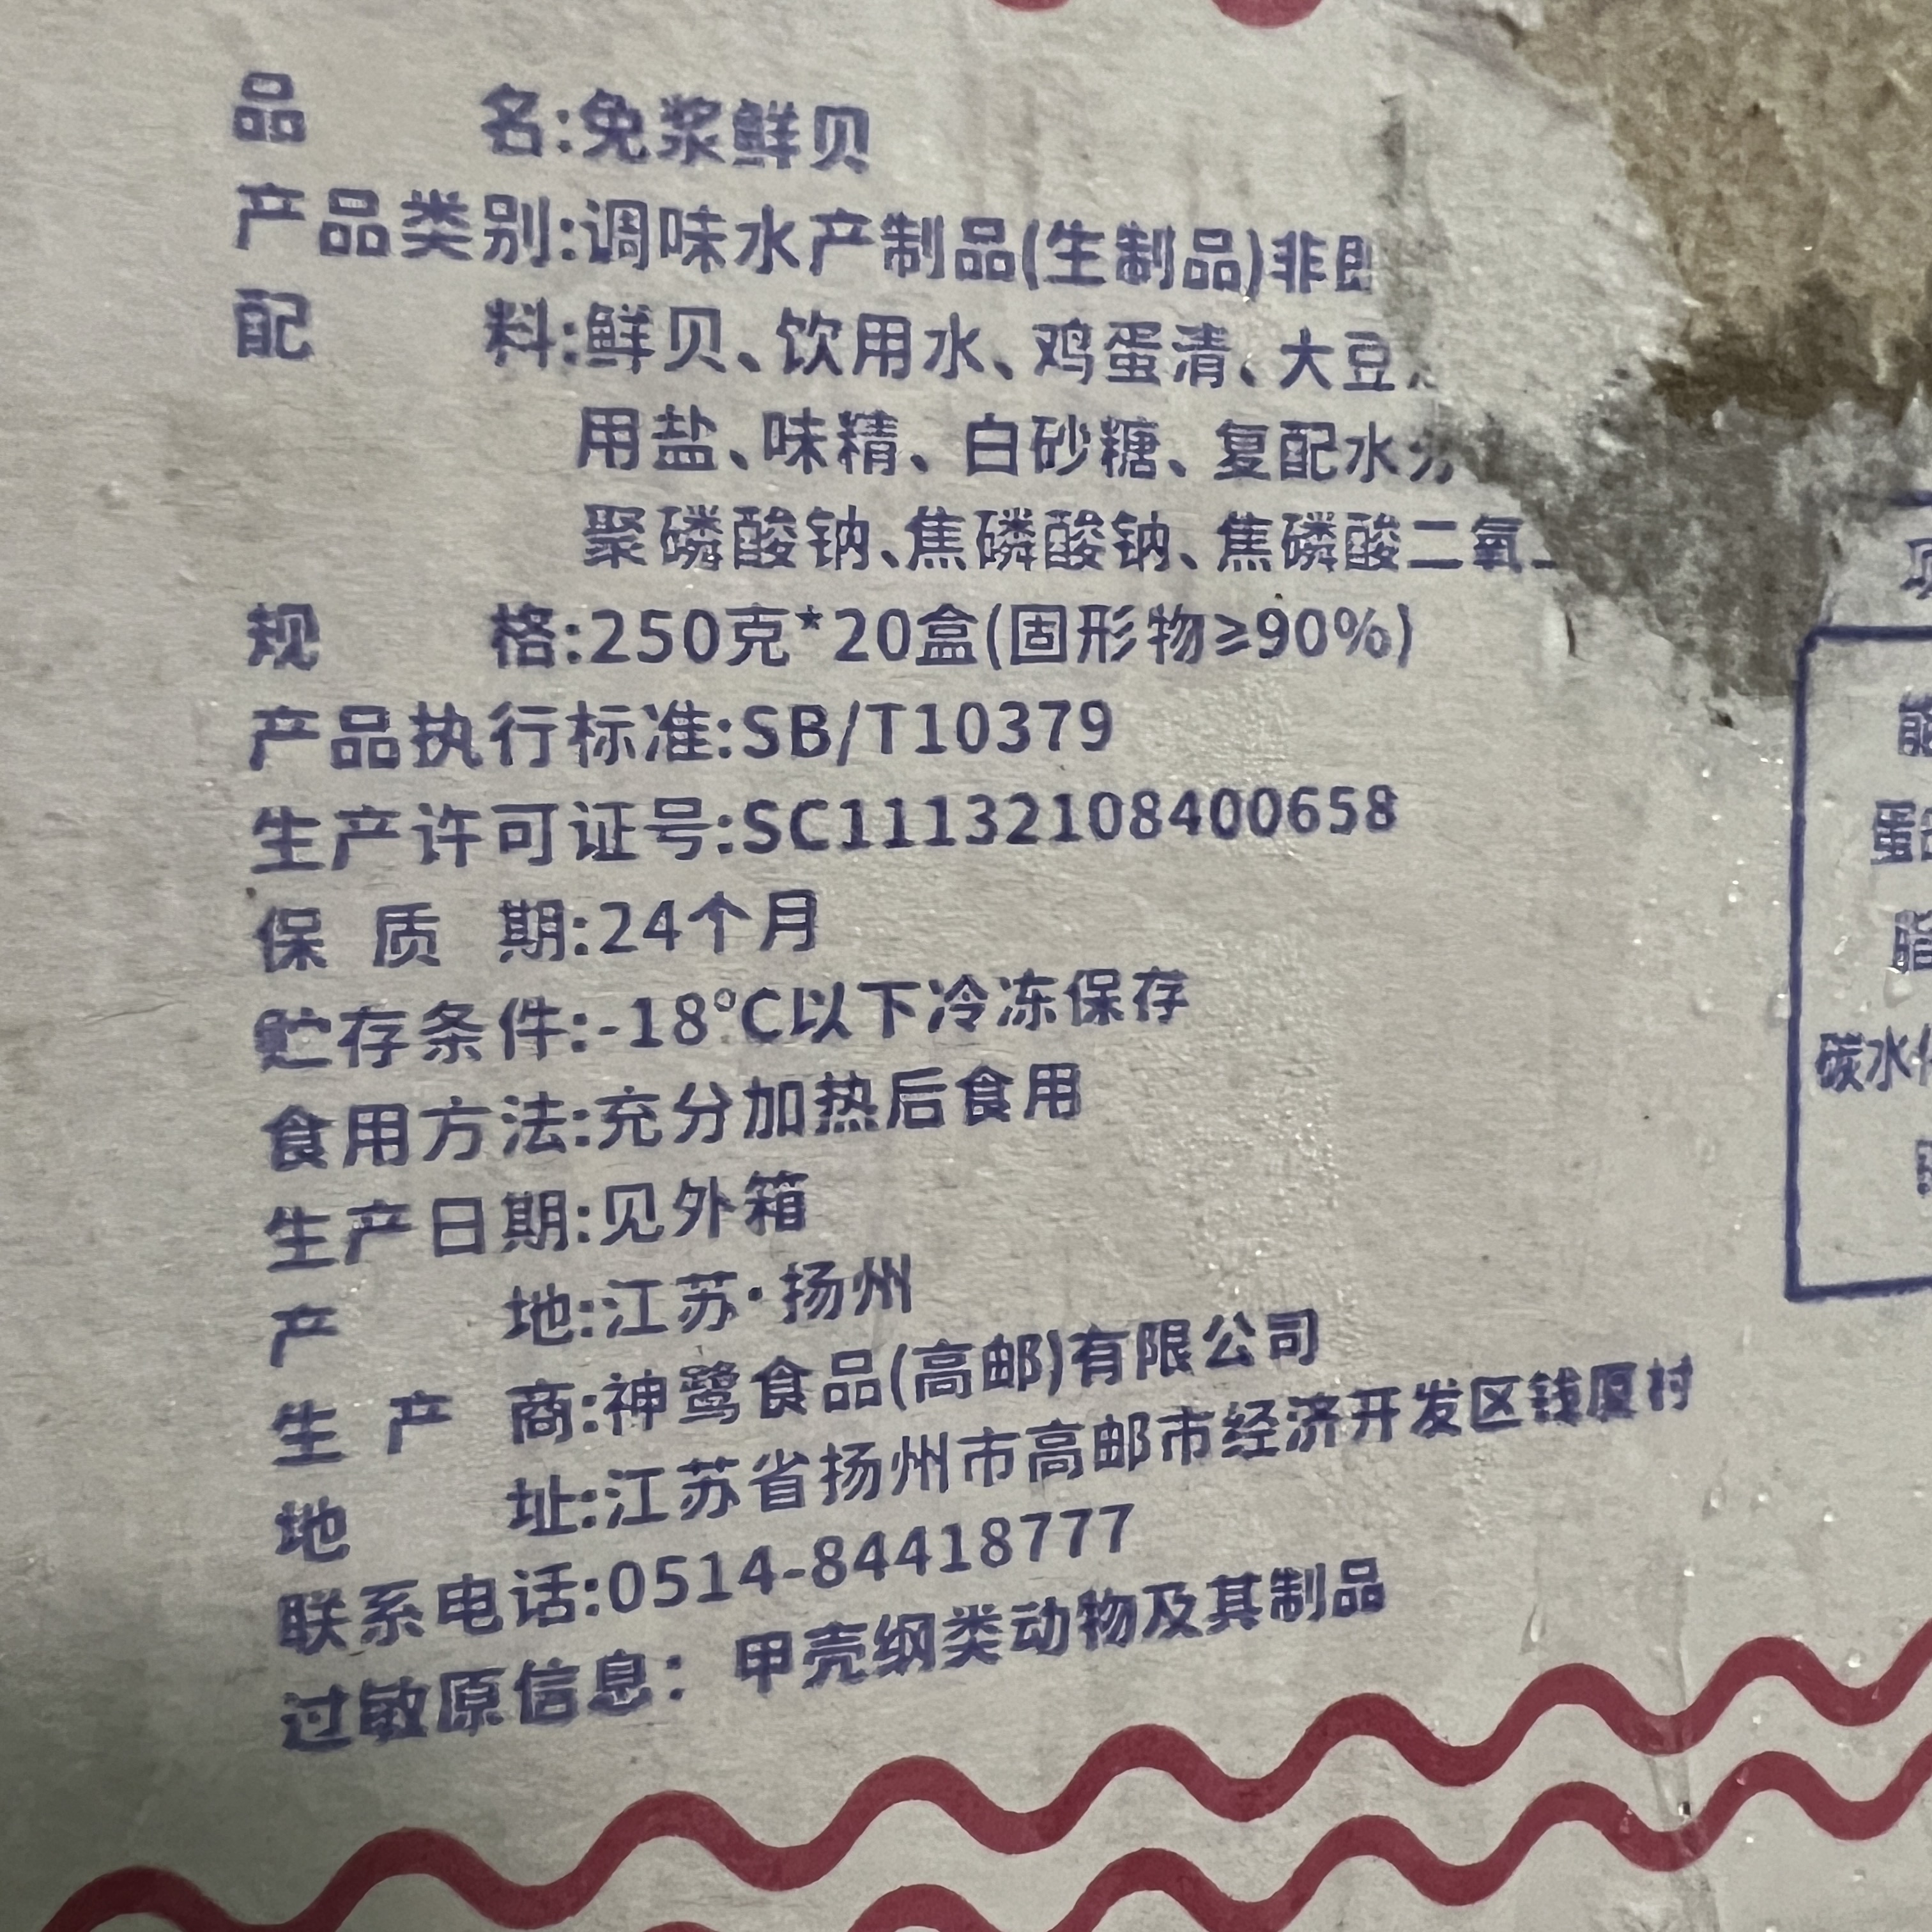 品 名:免浆鲜贝
产品类别:调味水产制品(生制品)非即
配 料:鲜贝、饮用水、鸡蛋清、大豆
用盐、味精、白砂糖、复配水分
聚磷酸钠、焦磷酸钠、焦磷酸二氧二
规 格:250克*20盒(固形物≥90%)
产品执行标准:SB/T10379
生产许可证号:SC11132108400658
保 质 期:24个月
贮存条件:-18℃以下冷冻保存
食用方法:充分加热后食用
生产日期:见外箱
产 地:江苏·扬州
生 产 商:神鹭食品(高邮)有限公司
地 址:江苏省扬州市高邮市经济开发区钱厦村
联系电话:0514-84418777
过敏原信息: 甲壳纲类动物及其制品
项
能
蛋白
脂
碳水